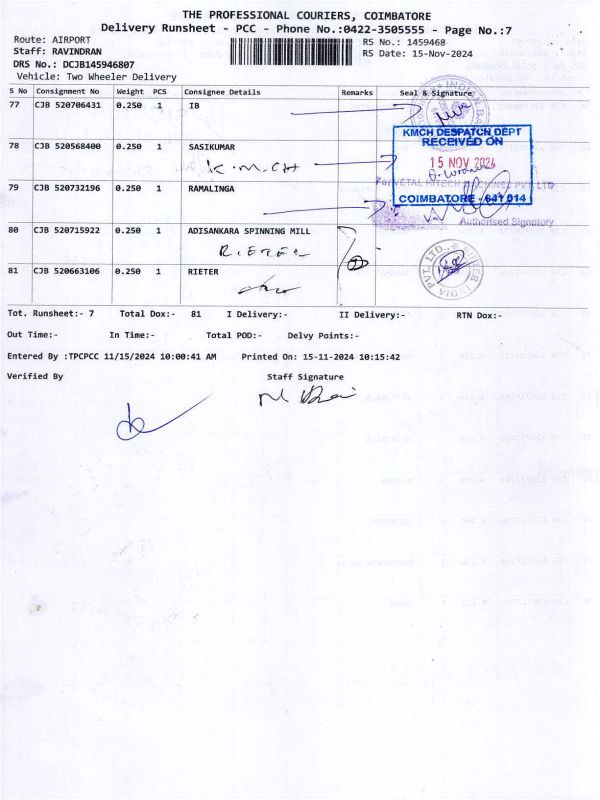 THE PROFESSIONAL COURIERS, COIMBATORE
Delivery Runsheet - PCC - Phone No.:0422-3505555 - Page No.:7
Route: AIRPORT
RS No.: 1459468
Staff: RAVINDRAN
RS Date: 15-Nov-2024
DRS No.: DCJB145946807
Vehicle: Two Wheeler Delivery
S No Consignment No Weight PCS Consignee Details Remarks Seal & Signature
77 CJB 520706431 0.250 1 IB
KMCH DESPATCH DEPT
RECEIVED ON
78 CJB 520568400 0.250 1 SASIKUMAR
K.M.CH
15 NOV 2024
79 CJB 520732196 0.250 1 RAMALINGA
For VETAL HITECH MACHINES PVT. LTD
COIMBATORE - 641 014
Authorised Signatory
80 CJB 520715922 0.250 1 ADISANKARA SPINNING MILL
RIETER
81 CJB 520663106 0.250 1 RIETER
RIETER INDIA PVT. LTD.
Tot. Runsheet:- 7 Total Dox:- 81 I Delivery:- II Delivery:- RTN Dox:-
Out Time:- In Time:- Total POD:- Delvy Points:-
Entered By :TPCPCC 11/15/2024 10:00:41 AM Printed On: 15-11-2024 10:15:42
Verified By Staff Signature